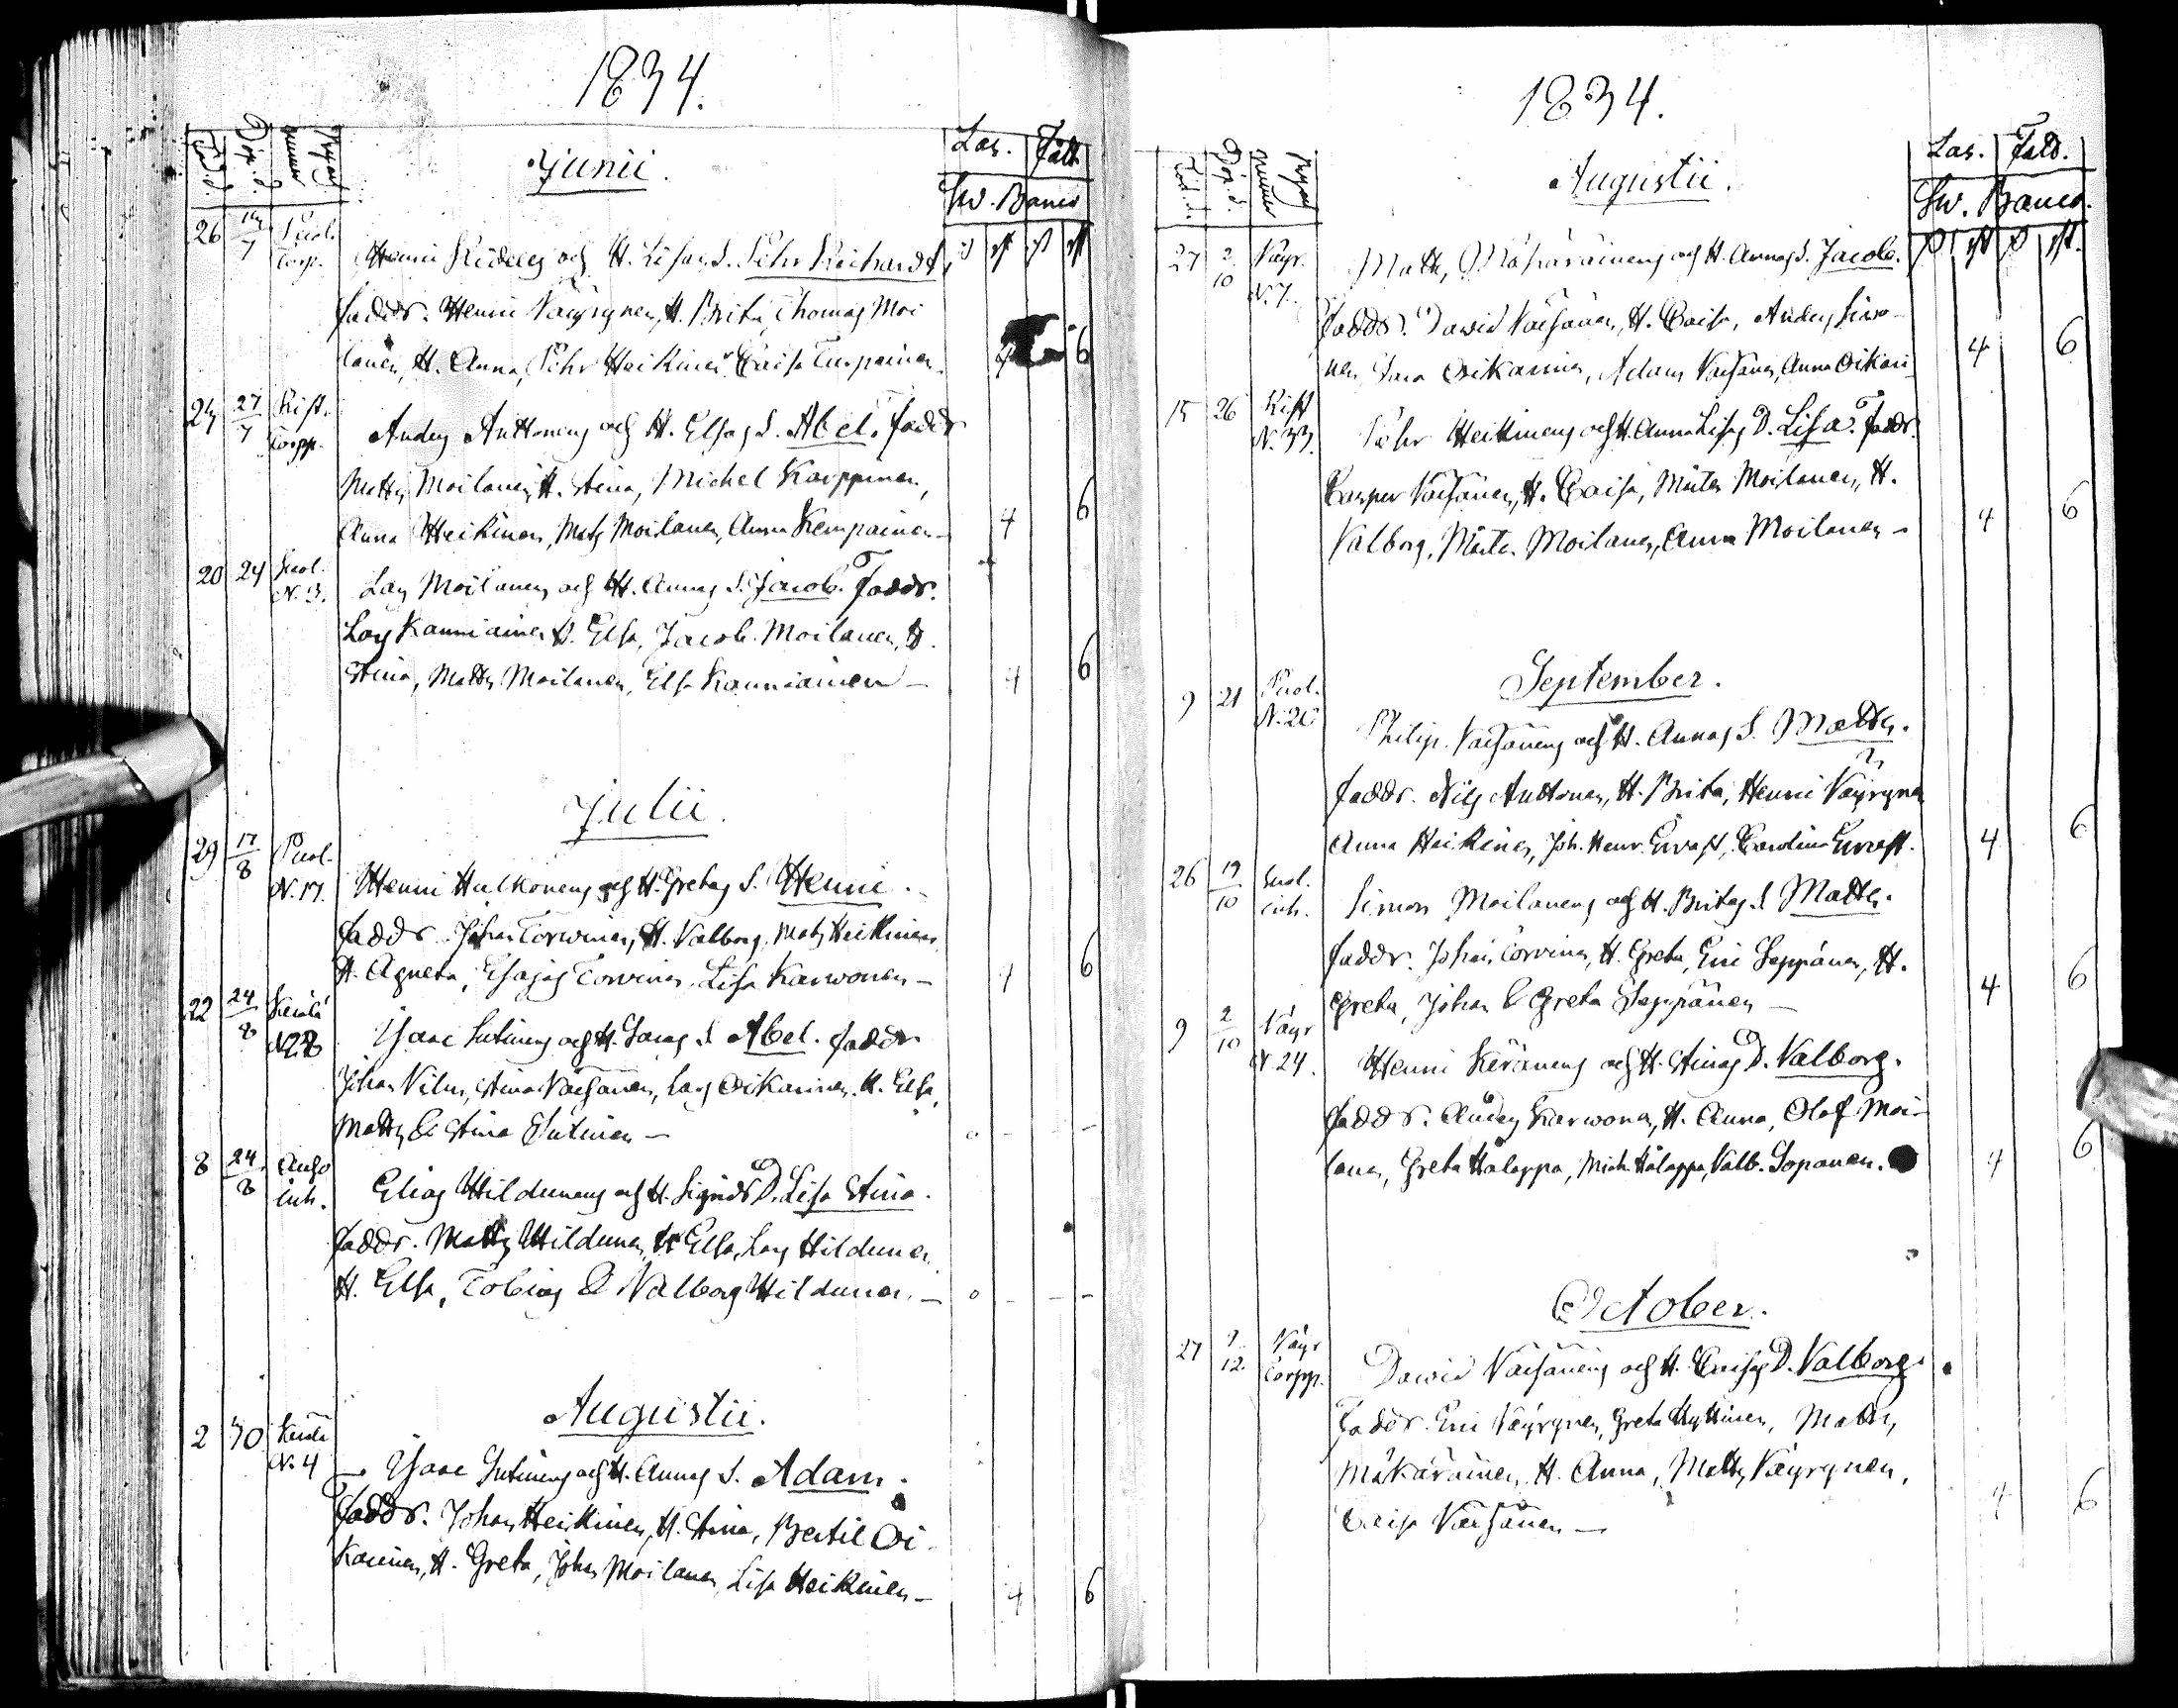 1834.
Föd. d. Döp. d. Byar nummer
Junii. Las. Fatt.
Sw. Banco
26 Puol. Torp. Henric och H. Lisas S. Pehr Richard
Faddr. Henric Väyrynen, H. Brita, Thomas Moi
lanen, H. Anna, Pehr Heikinen Caisa 4 6
24 27/7 Rist. Torpp. Anders Anttonens och H. Elsas S. Abel. Faddr
Matts Moilanen, H. Stina, Michel Karppinen,
Anna Heikinen, Mats Moilanen, Anna Kempainen – 4 6
20 24 N. 3. Lars Moilanens och H. Annas S. Jacob. Faddr.
Lars Kanniainen H. Elsa, Jacob Moilanen, H.
Stina, Matts Moilanen, Elsa Kanniainen – 4 6
Julii.
29 17/8 Puol. N. 17. Henric Hulkonens och H. Gretas S. Henric.
Faddr. Johan Torvinen, H. Valborg, Mats Heikinen
H. Agneta, Esajas Torvinen, Lisa Karvonen – 4 6
22 24/8 N. 28 Isaac Sutinens och H. Saras S Abel. Faddr
Johan Stina Väisänen, Lars Oikarinen H. Elsa,
Matts & Stina Sutinen – 0 – –
8 24/8 inh. Elias Hildunens och H. Sigrids D. Lisa Stina.
Faddr. Matts Hildunen, H Elsa, Lars Hildunen
H. Elsa, Tobias & Valborg Hildunen. – 0 – –
Augustii.
2 30 N. 4 Isaac Sutinens och H. Annas S. Adam.
Faddr. Johan Heikinen, H. Stina, Bertil Oi
karinen, H. Greta, Johan Moilanen, Lisa Heikinen – 4 6
1834.
Föd. d. Döp. d. Byar nummer
Augustii. Las. Fadd.
Sw. Banco.
27 2/10 Väyr. N. 7. Matts Mäkäräinens och H. Annas S. Jacob.
Faddr. David Väisänen, H. Caisa, Anders
nen, Sara Oikarinen, Adam Väisänen, Anna Oikari 4 6
15 26 Rist N. 33. Pehr Heikinens och H. Anna Lisas D. Lisa. Faddr.
Casper Väisänen, H. Caisa, Mårten Moilanen, H.
Valborg, Mårten Moilanen, Anna Moilanen – 4 6
September.
9 21 Puol. N. 20 Philip Väisänens och H. Annas S. Matts.
Faddr. Nils Anttonen, H. Brita, Henric Väyrynen
Anna Heikinen, Joh. Henr. Ervast, Carolina Ervast. 4 6
26 19/10 inh. Simon Moilanens och H. Britas S Matts.
Faddr. Johan Torvinen, H. Greta, Eric Seppänen, H.
Greta, Johan & Greta Seppänen – 4 6
9 2/10 Väyr N 24. Henric Keränens och H. Stinas D. Valborg.
Faddr. Anders Karvonen, H. Anna, Olof Moi-
lanen, Greta Halappa, Mich. Halappa, Valb. Sopanen. 4 6
October.
27 7/12. Väyr Torpp. David Väisänens och H. Caisas D. Valborg.
Faddr. Eric Väyrynen, Greta Hyttinen, Matts
Mäkäräinen, H. Anna, Matts Väyrynen,
Caisa Väisänen – 4 6